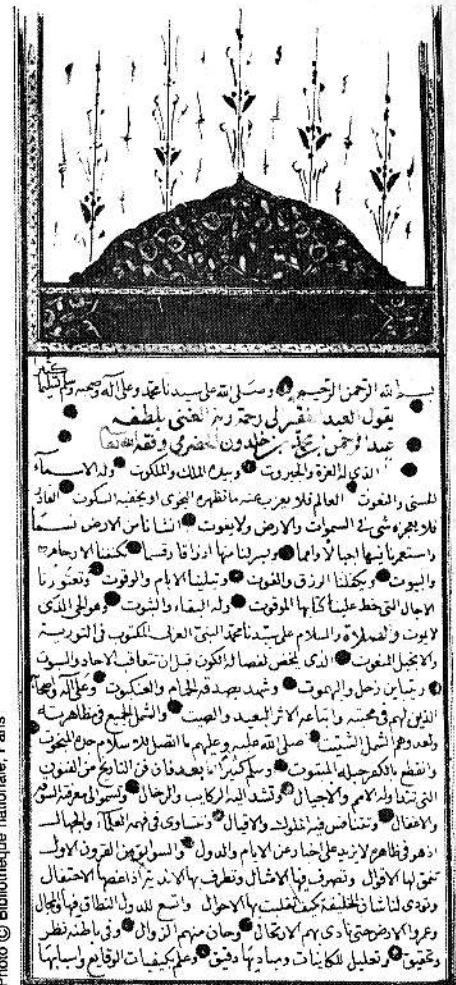 بسم الله الرحمن الرحيم وصلى الله على سيدنا محمد وعلى آله وصحبه وسلم تسليما كثيرا
يقول العبد الفقير إلى رحمة ربه الغني بلطفه
عبد الرحمن بن محمد بن خلدون الحضرمي وفقه الله
الذي له العزة والجبروت وبيده الملك والملكوت وله الاسماء
الحسنى والنعوت العالم فلا يعزب عنه ما تظهره النجوى او يخفيه السكوت القادر
فلا يعجزه شي في السموات والارض ولا يفوت انشانا من الارض نسما
واستعمرنا فيها اجيالا وامما ويسر لنا منها ارزاقا وقسما تكنفنا الارحام
والبيوت ويكفلنا الرزق والقوت وتبلينا الايام والوقوت وتعتورنا
الاجال التي خط علينا كتابها الموقوت وله البقاء والثبوت وهو الحي الذي
لا يموت والصلاة والسلام على سيدنا محمد النبي العربي المكتوب في التورية
والانجيل المنعوت الذي تمخض لفصاله الكون قبل ان تتعاقب الاحاد والسبوت
ويتباين زحل واليهموت وشهد بصدقه الحمام والعنكبوت وعلى آله
الذين لهم في محبته واتباعه الاثر البعيد والصيت والشمل الجميع في مظاهرته
ولعدوهم الشمل الشتيت صلى الله عليه وعليهم ما اتصل للاسلام جده المبخوت
وانقطع بالكفر حبله المبتوت وسلم كثيرا اما بعد فان فن التاريخ من الفنون
التي تتداوله الامم والاجيال وتشد اليه الركايب والرحال وتسمو الى معرفته السوقة
والاغفال وتتنافس فيه الملوك والاقيال وتتساوى في فهمه العلماء والجهال
اذ هو في ظاهره لا يزيد على اخبار عن الايام والدول والسوابق من القرون الاول
تنمق لها الاقوال وتصرف فيها الامثال وتطرف بها الاندية اذا غصها الاحتفال
وتودي لنا شان الخليقة كيف تقلبت بها الاحوال واتسع للدول النطاق فيها والمجال
وعمروا الارض حتى نادى بهم الارتحال وحان منهم الزوال وفي باطنه نظر
وتحقيق وتعليل للكاينات ومباديها دقيق وعلم بكيفيات الوقايع واسبابها
Photo © Bibliothèque nationale, Paris